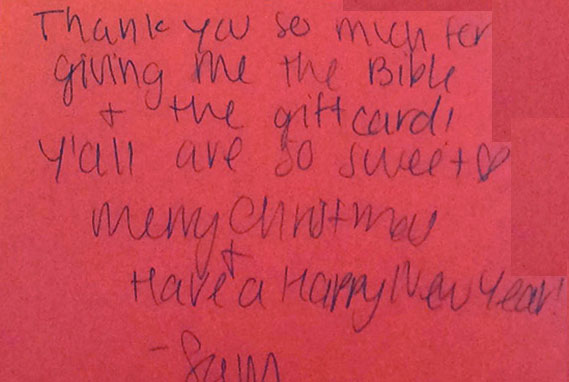 Thank you so much for
giving me the Bible
+ the giftcard!
Y'all are so sweet♡
Merry Christmas
+
Have a Happy New Year!
-Sum